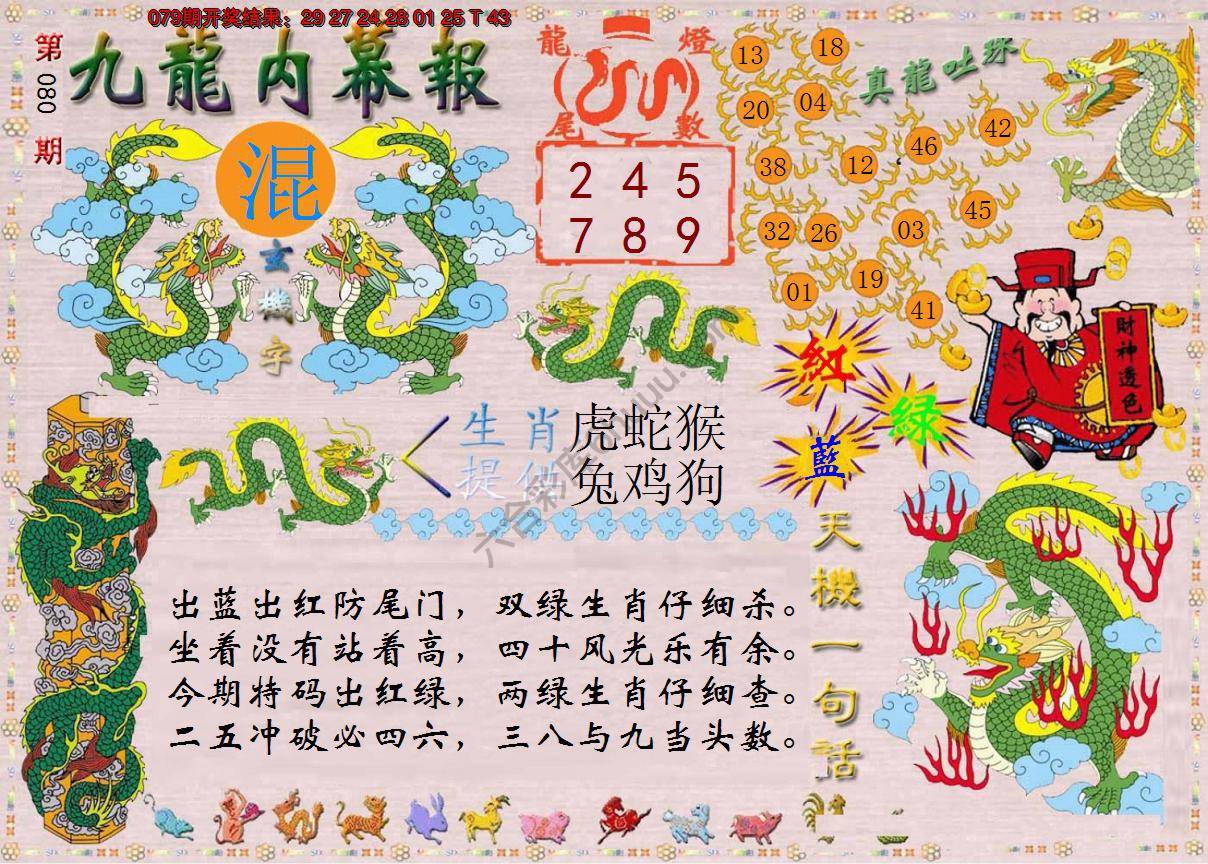 079期开奖结果：29 27 24 28 01 25 T 43
第080期
九龍内幕報
混
玄機字
龍燈
尾數
2 4 5
7 8 9
真龍吐珠
13 18
20 04
46 42
38 12
45
32 26 03
01 19
41
財神透色
紅
綠
藍
生肖 虎蛇猴
提供 兔鸡狗
天機一句話
出蓝出红防尾门，双绿生肖仔细杀。
坐着没有站着高，四十风光乐有余。
今期特码出红绿，两绿生肖仔细查。
二五冲破必四六，三八与九当头数。